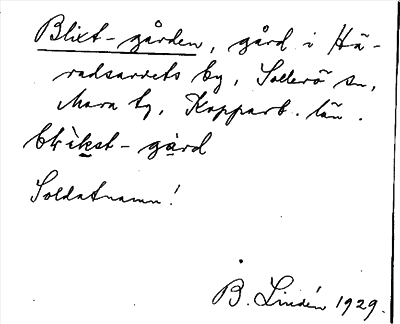 Blixt-gården, gård i Hä-
radsarvets by, Sollerö sn,
Mora tg, Kopparb. län.
blìkst-gård
Soldatnamn!
B. Lindén 1929.